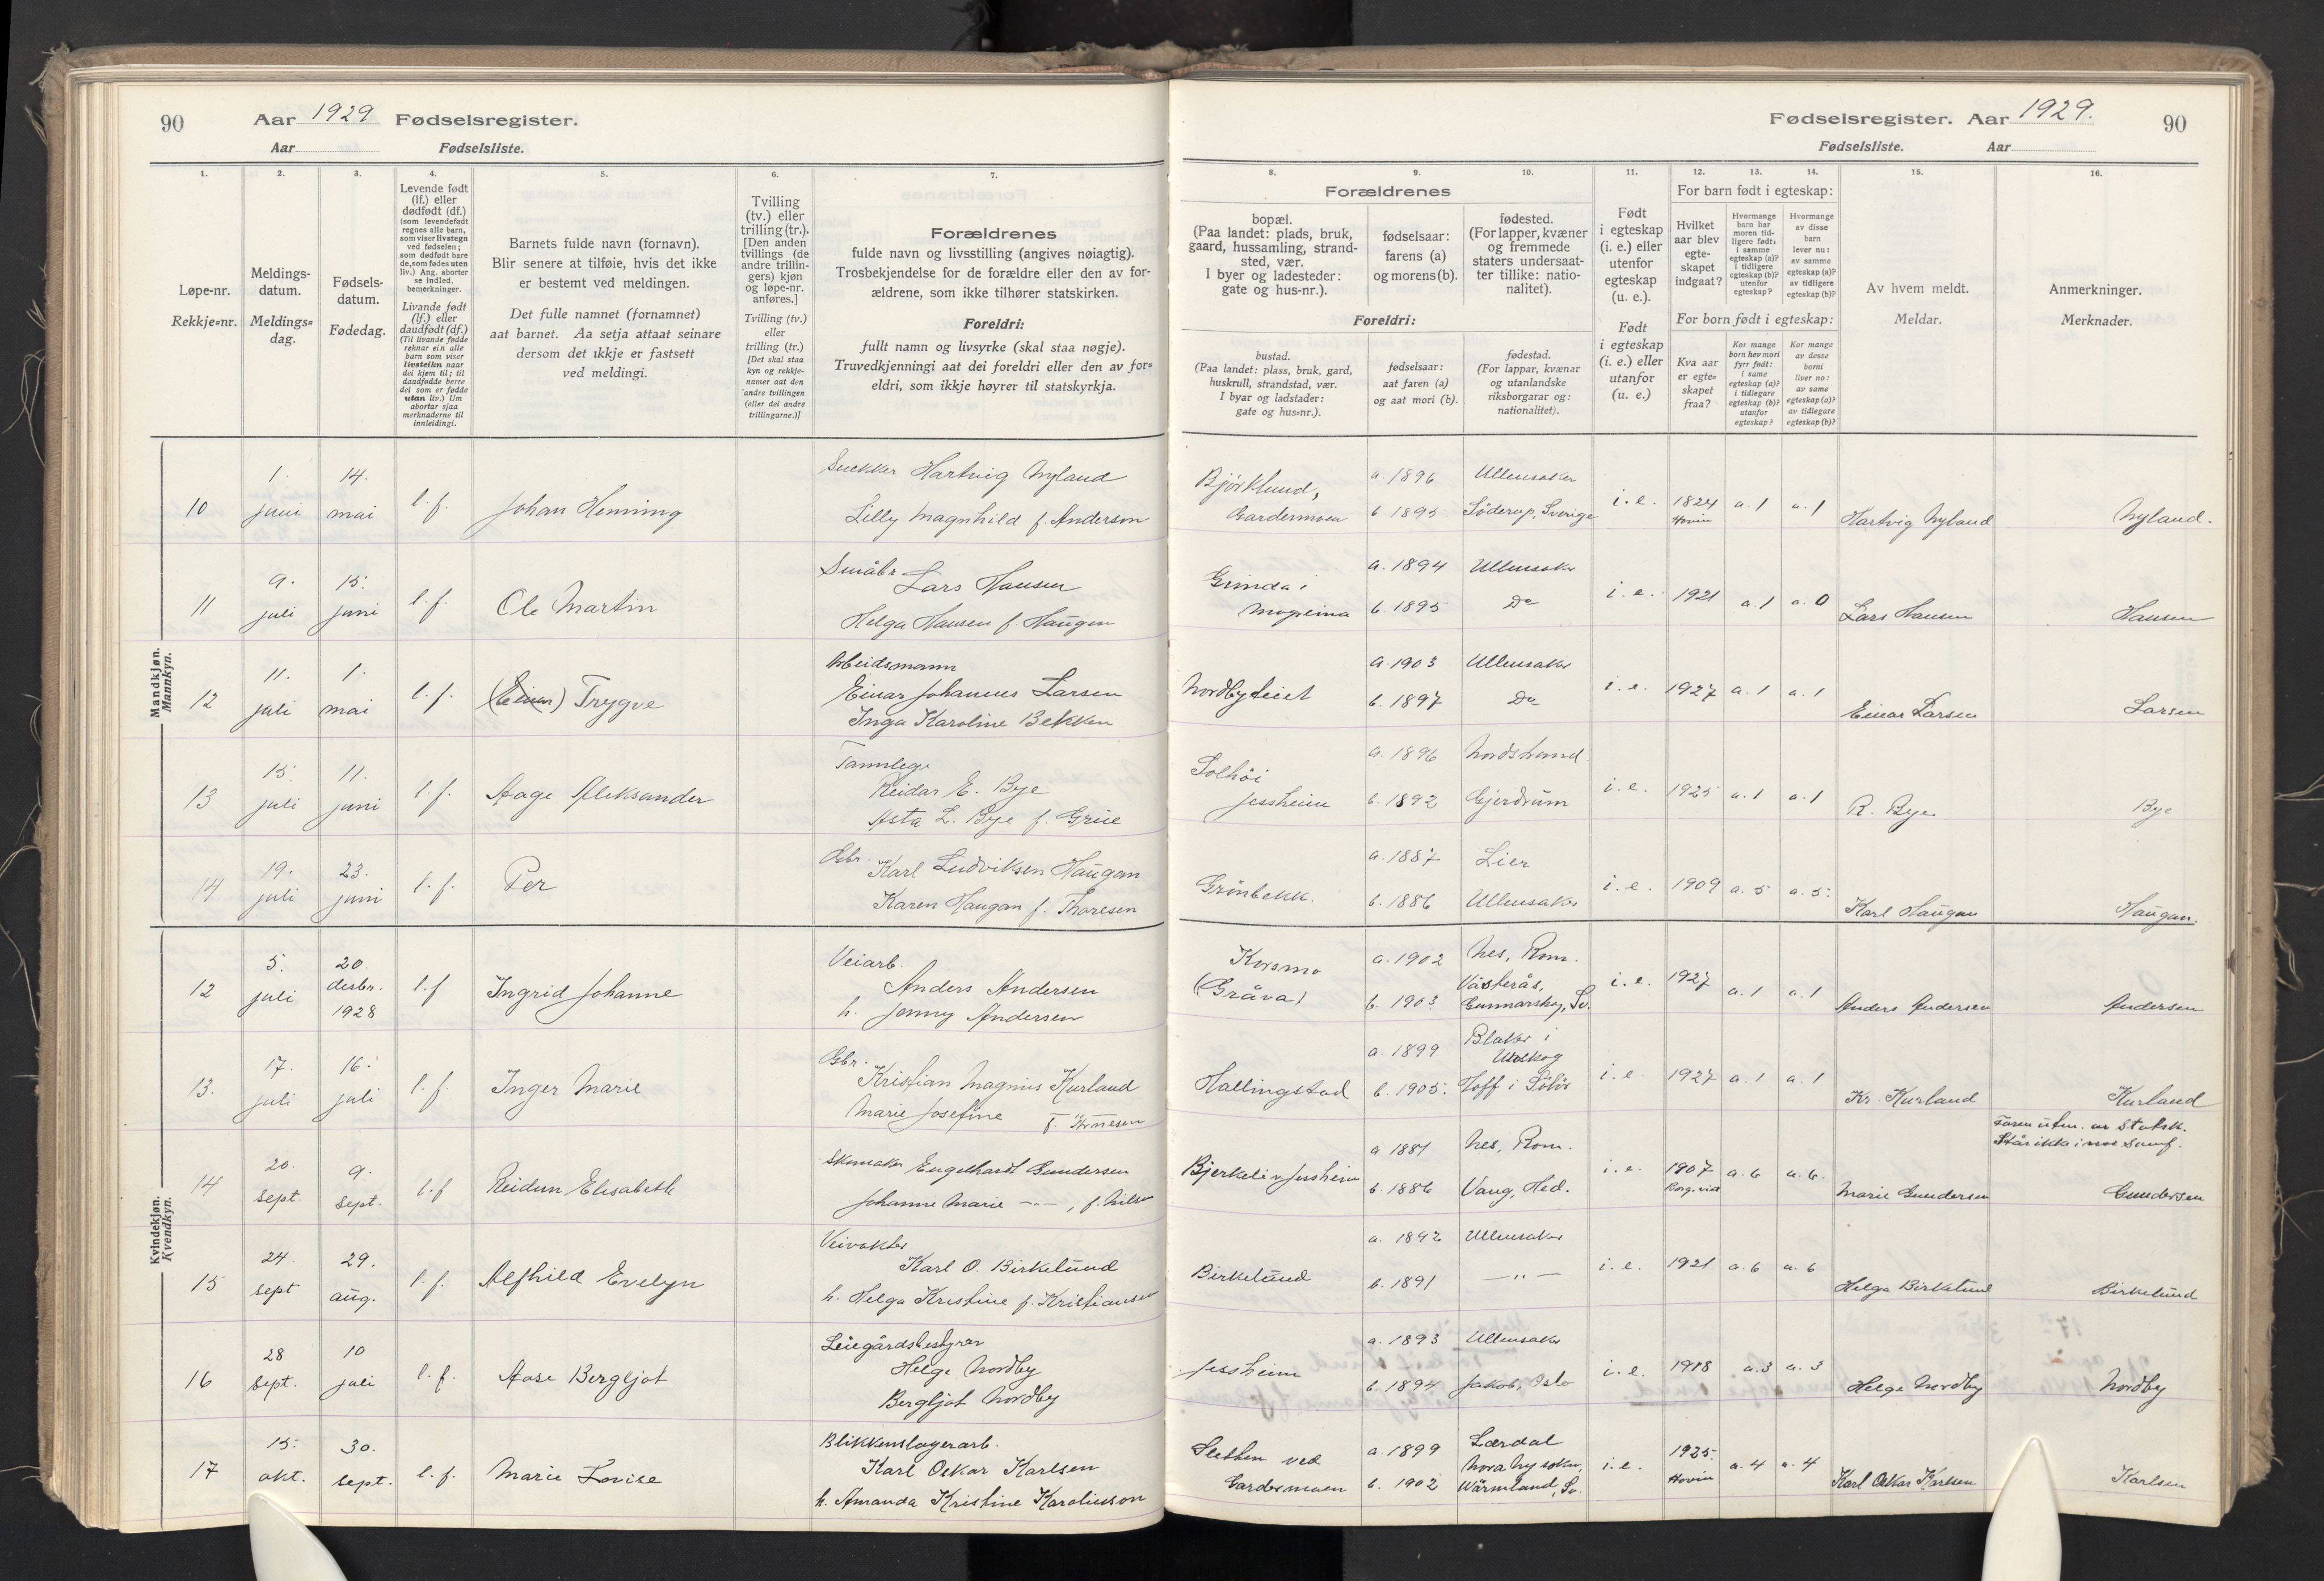 90
Aar 1929 Fødselsregister.
Aar Fødselsliste.
1.
2.
3.
4.
5.
6.
7.
Løpe-nr.
Rekkje-nr.
Meldings-
datum.
Meldings-
dag.
Fødsels-
datum.
Fødedag.
Levende født
(lf.) eller
dødfødt (df.)
(som levendefødt
regnes alle barn,
som viser livstegn
ved fødselen;
som dødfødt bare
de, som fødes uten
liv.) Ang. aborter
se indled.
bemerkninger.
Livande født
(lf.) eller
daudfødt (df.)
(Til livande fødde
reknar ein alle
barn som viser
livsteikn naar
dei kjem til; til
daudfødde berre
dei som er fødde
utan liv.) Um
abortar sjaa
merknaderne til
innleidingi.
Barnets fulde navn (fornavn).
Blir senere at tilføie, hvis det ikke
er bestemt ved meldingen.
Det fulle namnet (fornamnet)
aat barnet. Aa setja attaat seinare
dersom det ikkje er fastsett
ved meldingi.
Tvilling
(tv.) eller
trilling (tr.).
[Den anden
tvillings (de
andre trillin-
gers) kjøn
og løpe-nr.
anføres.]
Tvilling (tv.)
eller
trilling (tr.)
[Det skal staa
kyn og rekkje-
numer aat den
andre tvillingen
(eller dei andre
trillingarne.)]
Forældrenes
fulde navn og livsstilling (angives nøiagtig).
Trosbekjendelse for de forældre eller den av for-
ældrene, som ikke tilhører statskirken.
Foreldri:
fullt namn og livsyrke (skal staa nøgje).
Truvedkjenningi aat dei foreldri eller den av for-
eldri, som ikkje høyrer til statskyrkja.
Mandkjøn.
Mannkyn.
10 1. juni 14. mai l. f. Johan Henning
Snekker Hartvig Nyland
Lilly Magnhild f. Anderson
11 9. juli 15. juni l. f. Ole Martin
Småbr. Lars Hansen
Helga Hansen f. Haugen
12 11. juli 1. mai l. f. (Einar) Trygve
Arbeidsmann
Einar Johannes Larsen
Inga Karoline Bekken
13 15. juli 11. juni l. f. Aage Aleksander
Tannlege
Reidar E. Bye
Asta L. Bye f. Grüe
14 19. juli 23. juni l. f. Per
Gbr. Karl Ludviksen Haugan
Karen Haugan f. Thoresen
Kvindekjøn.
Kvendkyn.
12 5. juli 20. desbr. 1928 l. f Ingrid Johanne
Veiarb.
Anders Andersen
h. Jenny Andersen
13. 17. juli 16. juli l. f. Inger Marie
Gbr. Kristian Magnus Kurland
Marie Josefine f.
14 20. sept. 9. sept. l. f Reidun Elisabeth
Skomaker Engelhardt Gundersen
Johanne Marie —"—, f. Nilsen
15 24. sept 29. aug. l. f. Alfhild Evelyn
Veivokter
Karl O. Birkelund
h. Helga Kristine f. Kristiansen
16 28 sept. 10 juli l. f. Aase Bergljot
Leiegårdsbestyrer
Helge Nordby
Bergljot Nordby
17 15. okt. 30. sept. l. f. Marie Lovise
Blikkenslagerarb.
Karl Oskar Karlsen
h. Amanda Kristine Karolusson
Fødselsregister. Aar 1929.
90
Fødselsliste. Aar
8.
9.
10.
11.
12.
13.
14.
15.
16.
Forældrenes
bopæl.
(Paa landet: plads, bruk,
gaard, hussamling, strand-
sted, vær.
I byer og ladesteder:
gate og hus-nr.).
fødselsaar:
farens (a)
og morens (b).
fødested.
(For lapper, kvæner
og fremmede
staters undersaat-
ter tillike: natio-
nalitet).
Foreldri:
bustad.
(Paa landet: plass, bruk, gard,
huskrull, strandstad, vær.
I byar og ladstader:
gate og hus-nr.).
fødselsaar:
aat faren (a)
og aat mori (b).
fødestad.
(For lappar, kvænar
og utanlandske
riksborgarar og:
nationalitet).
Født
i egteskap
(i. e.) eller
utenfor
egteskap
(u. e.).
Født
i egteskap
(i. e.) eller
utanfor
(u. e.)
For barn født i egteskap:
Hvilket
aar blev
egte-
skapet
indgaat?
Hvormange
barn har
moren tid-
ligere født:
i samme
egteskap (a)?
i tidligere
egteskap (b)?
utenfor
egteskap?
Hvormange
av disse
barn
lever nu:
av samme
egteskap (a)?
av tidligere
egteskap (b)?
For born født i egteskap:
Kva aar
er egte-
skapet
fraa?
Kor mange
born hev mori
fyrr født:
i same
egteskap (a)?
i tidlegare
egteskap (b)?
utanfor
egteskap?
Kor mange
av desse
borni
liver no:
av same
egteskap (a)?
av tidlegare
egteskap (b)?
Av hvem meldt.
Meldar.
Anmerkninger.
Merknader.
Bjørklund, Gardermoen
a. 1896 Ullensaker
b. 1895 Söderup, Sverige
i. e. 1924 Hovin a. 1 a. 1 Hartvig Nyland Nyland.
Grinda i Mogreina
a. 1894 Ullensaker
b. 1895 Do
i. e. 1921 a. 1 a. 0 Lars Hansen Hansen
Nordbyteiet
a. 1903 Ullensaker
b. 1897 Do
i. e. 1927 a. 1 a. 1 Einar Larsen Larsen
Solhöi Jessheim
a. 1896 Nordstrand
b. 1892 Gjerdrum
i. e. 1925 a. 1 a. 1 R. Bye Bye
Grönbekk.
a. 1887 Lier
b. 1886 Ullensaker
i. e. 1909 a. 5 a. 5. Karl Haugan Haugan.
Korsmo (Gråva)
a. 1902 Nes, Rom.
b. 1903 Västerås, Gunnarskog, Sv.
i. e. 1927 a. 1 a. 1 Anders Andersen Andersen
Hallingstad
a. 1899 Blaker i Urskog
b. 1905. Hoff i Solør
i. e. 1927 a. 1 a. 1 Kr. Kurland Kurland
Faren utm. av Statsk.
Står ikke i noe Samf.
Bjerkeli v/ Jessheim
a. 1881 Nes, Rom.
b. 1886 Vang, Hed.
i. e. 1907 a. 6 a. 6. Marie Gundersen Gundersen
Birkelund
a. 1892 Ullensaker
b. 1891 —"—
i. e. 1921 a. 6 a. 6 Helga Birkelund Birkelund
Jessheim
a. 1893 Ullensaker
b. 1894 Jakob, Oslo
i. e. 1918 a. 3 a. 3 Helge Nordby Nordby
Sletten ved Gardermoen
a. 1899 Lærdal
b. 1902 Nora Ny sokn, Wärmland, Sv.
i. e. 1925. Hovin a. 4 a. 4 Karl Oskar Karlsen Karlsen